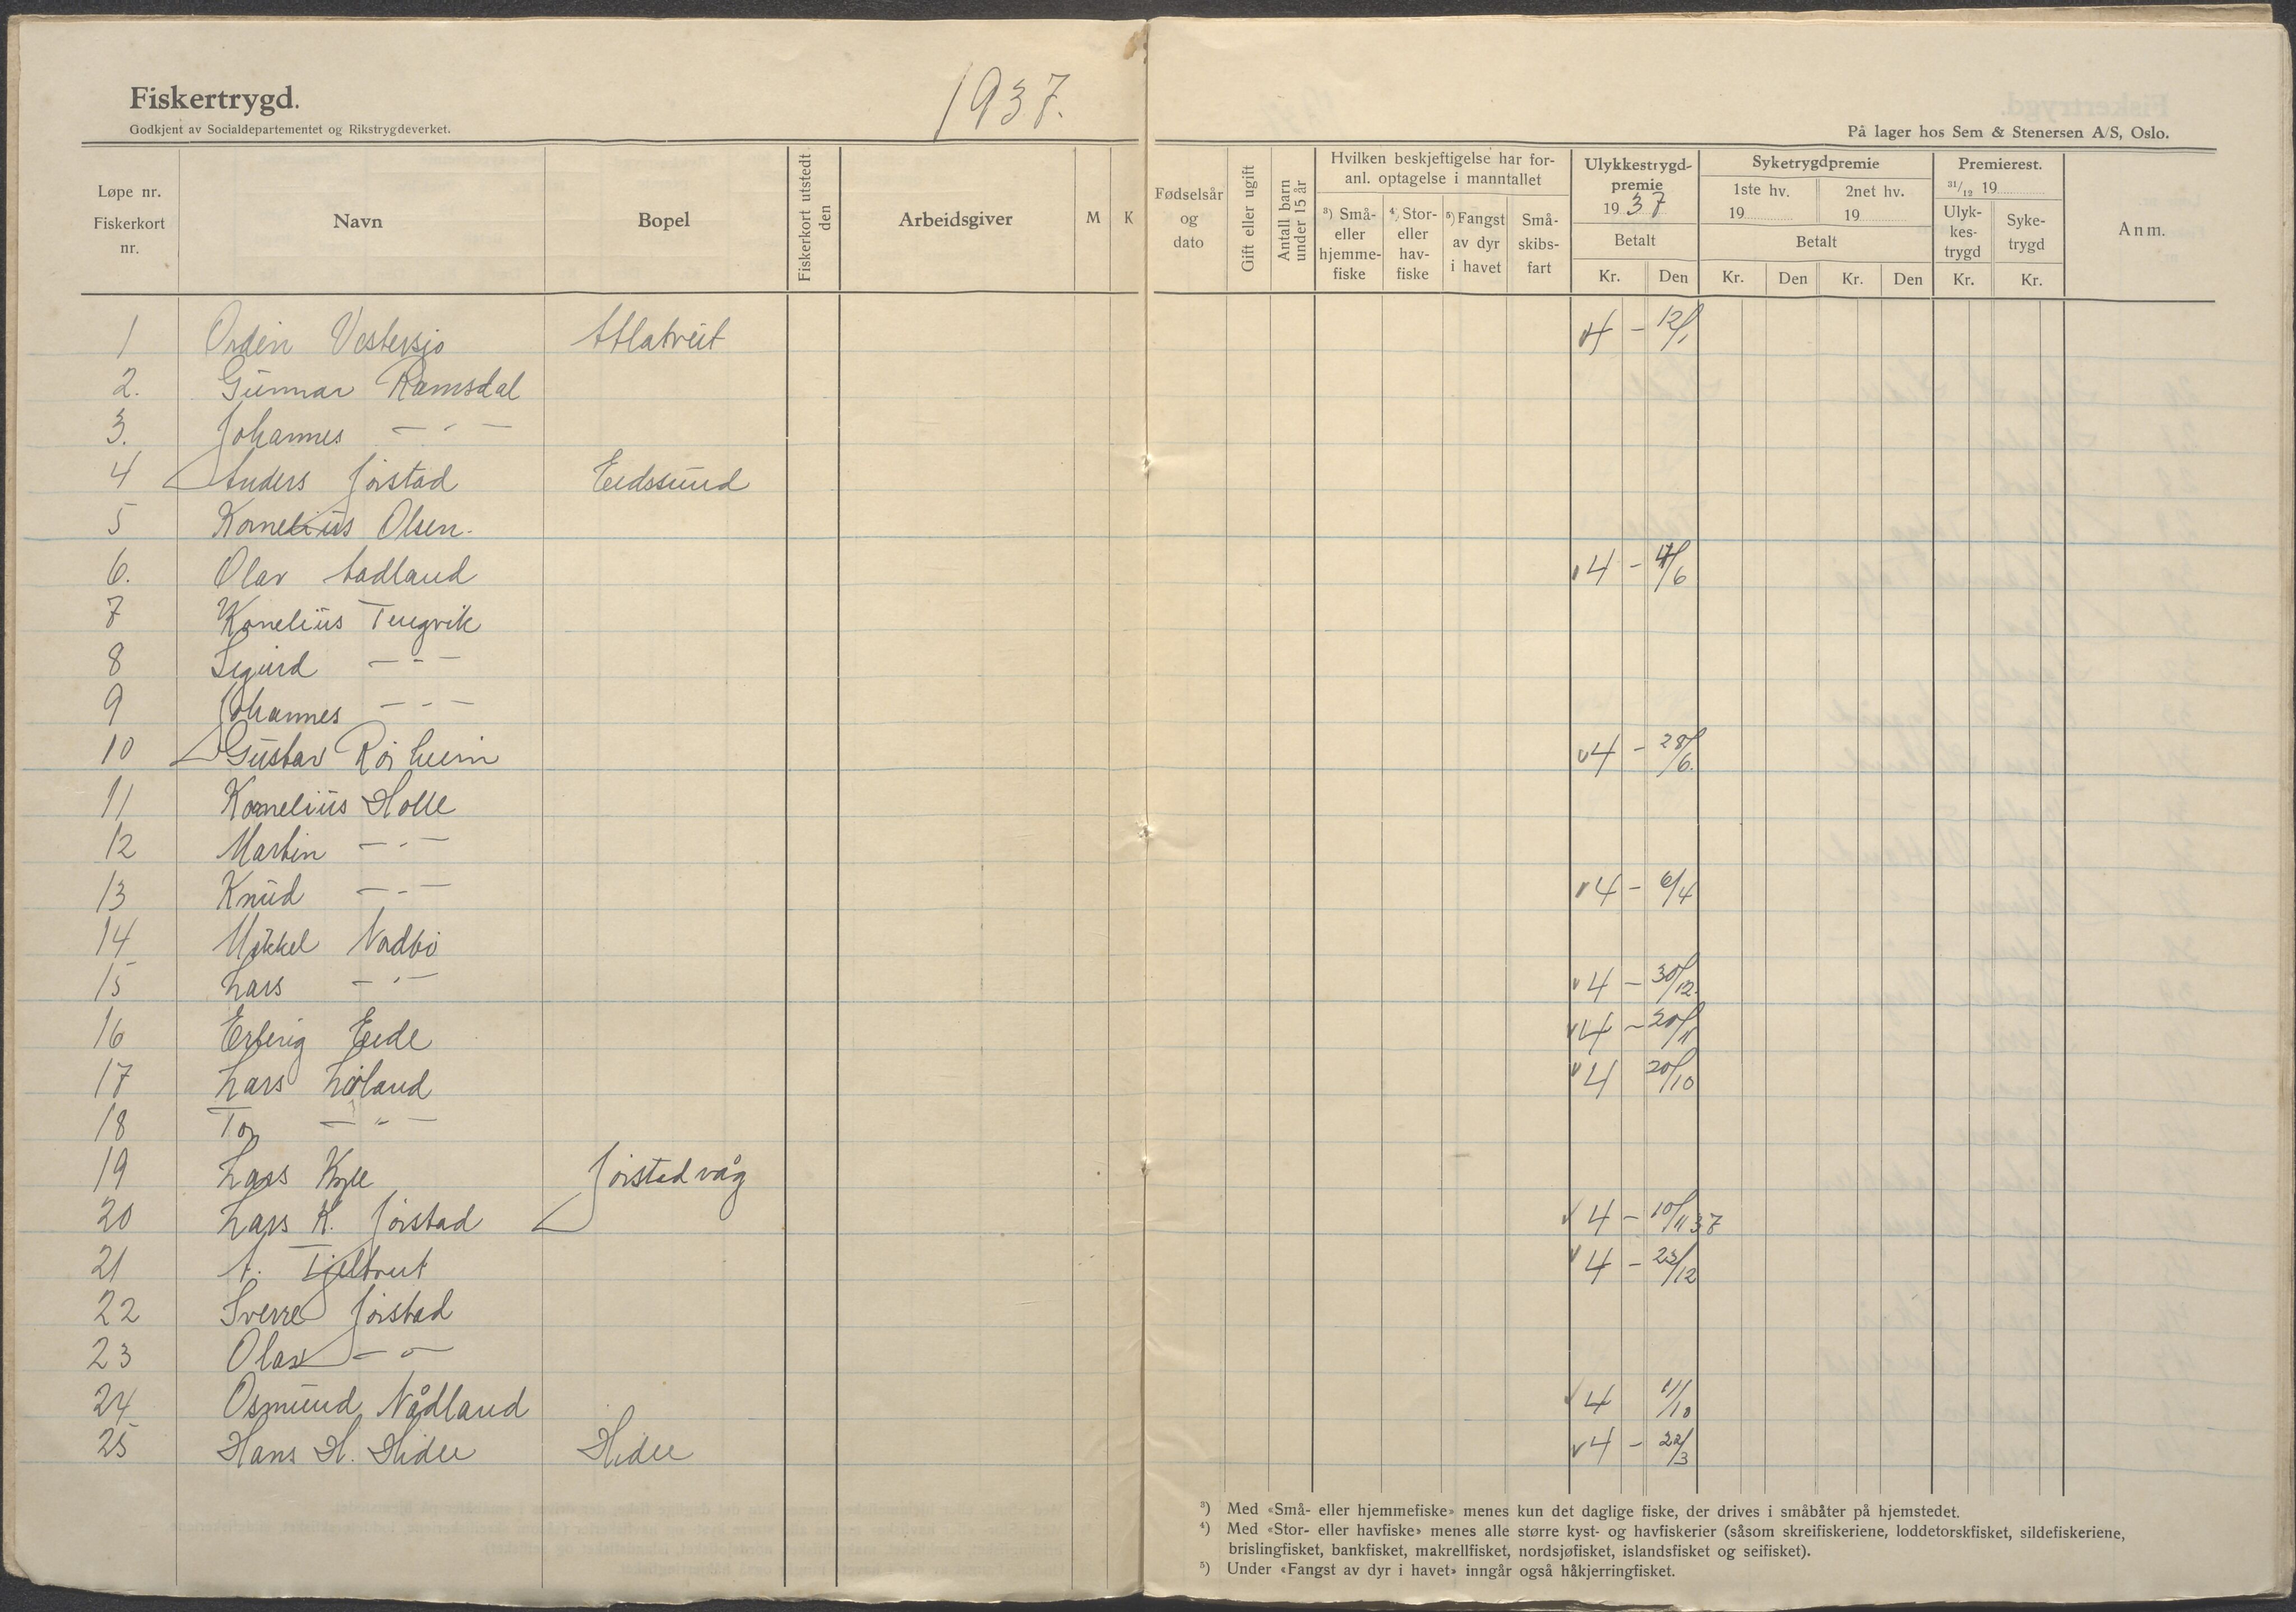 Fiskertrygd.
Godkjent av Socialdepartementet og Rikstrygdeverket.
1937.
På lager hos Sem & Stenersen A/S, Oslo.
Løpe nr.
Fiskerkort
nr.
Navn
Bopel
Fiskerkort utstedt
den
Arbeidsgiver
M
K
Fødselsår
og
dato
Gift eller ugift
Antall barn
under 15 år
Hvilken beskjeftigelse har for-
anl. optagelse i manntallet
³) Små-
eller
hjemme-
fiske
⁴) Stor-
eller
hav-
fiske
⁵) Fangst
av dyr
i havet
Små-
skibs-
fart
Ulykkestrygd-
premie
1937
Betalt
Kr. Den
Syketrygdpremie
1ste hv. 2net hv.
19 19
Betalt
Kr. Den Kr. Den
Premierest.
31/12 19
Ulyk-
kes-
trygd
Syke-
trygd
Kr. Kr.
Anm.
1 Ordin Vestersjø Atlatveit 4 – 12/1
2. Gunnar Ramsdal
3. Johannes – " –
4 Anders Jørstad Eidssund
5 Kornelius Olsen.
6. Olav Aadland 4 – /6
7 Konelius Tengvik
8 Sigurd – " –
9 Johannes – " –
10 Gustav Røiheim 4 – 28/6.
11 Kornelius Holle
12 Martin – " –
13 Knud – " – 4 – 6/4
14 Mikkel Nadbø
15 Lars – " – 4 – 30/12.
16 Erling Eide 4 – 20/11
17 Lars Løland 4 20/10
18 Tor – " –
19 Lars Kyle Jørstadvåg
20 Lars K. Jørstad 4 – 10/11 37
21 A. Tjeltveit 4 – 23/12
22 Sverre Jørstad
23 Olav – " –
24 Osmund Nådland 4 11/10
25 Hans H. Hidle Hidle 4 – 22/3
³) Med «Små- eller hjemmefiske» menes kun det daglige fiske, der drives i småbåter på hjemstedet.
⁴) Med «Stor- eller havfiske» menes alle større kyst- og havfiskerier (såsom skreifiskeriene, loddetorskfisket, sildefiskeriene,
brislingfisket, bankfisket, makrellfisket, nordsjøfisket, islandsfisket og seifisket).
⁵) Under «Fangst av dyr i havet» inngår også håkjerringfisket.